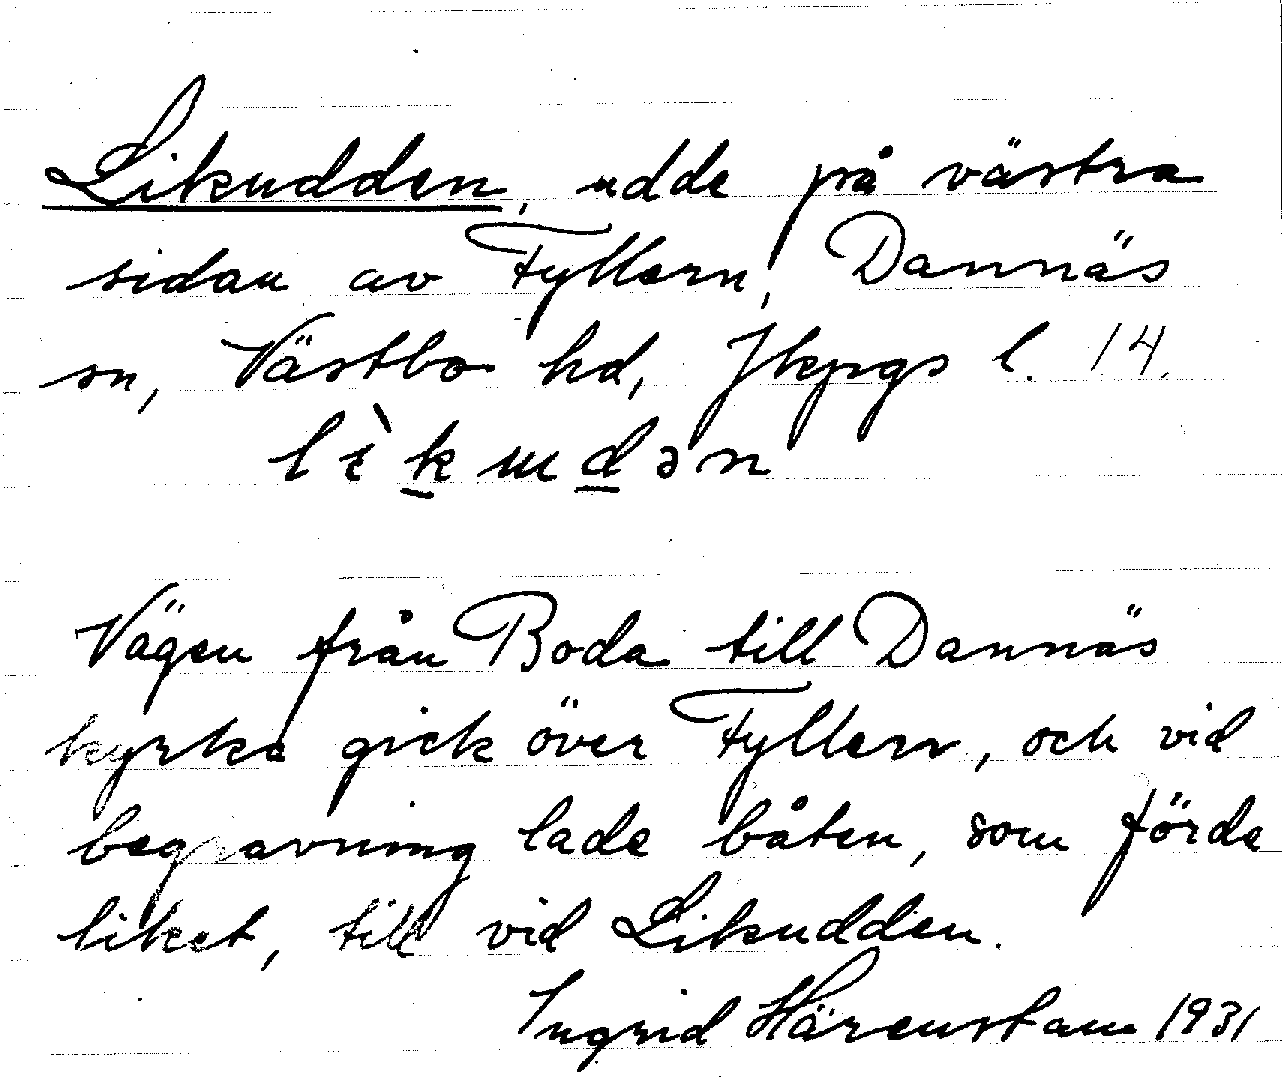 Likudden, udde på västra
sidan av Fyllern, Dannäs
sn, Västbo hd, Jkpgs l. 14.
lìkɯdən
Vägen från Boda till Dannäs
kyrka gick över Fyllern, och vid
begravning lade båten, som förde
liket, till vid Likudden.
Ingrid Härenstam 1931